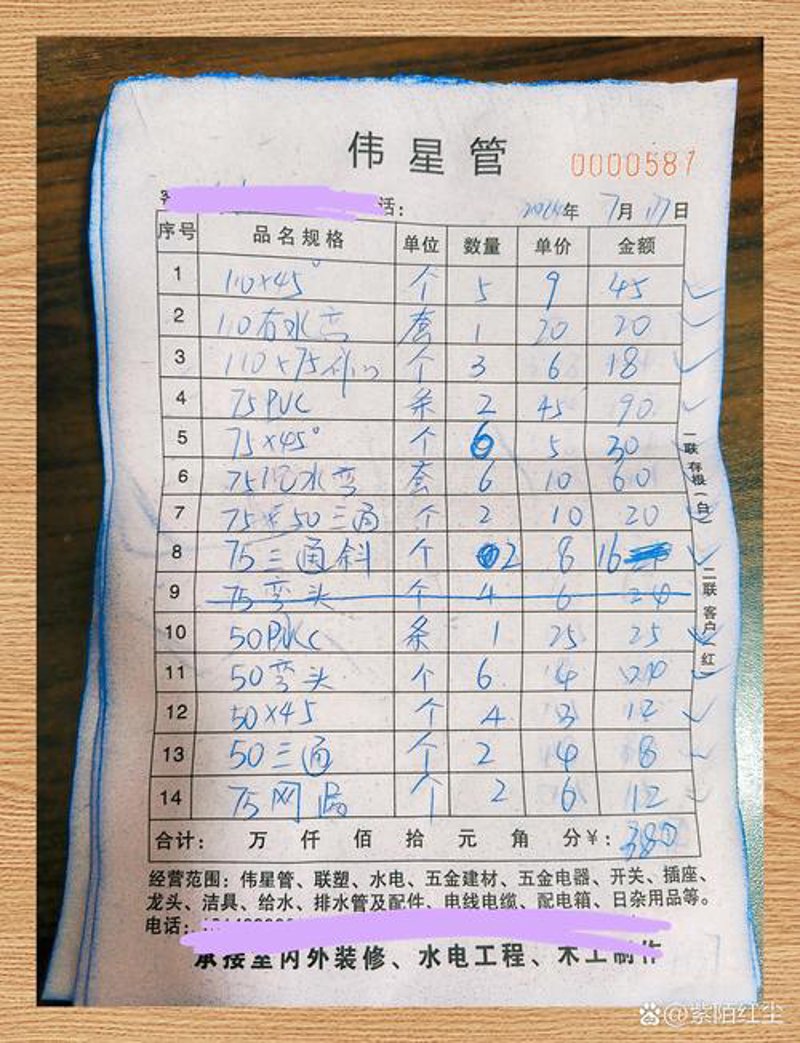 伟星管 0000587
话： 年 7月17日
序号 品名规格 单位 数量 单价 金额
1 110×45° 个 5 9 45
2 110有水弯 套 1 20 20
3 110×75补心 个 3 6 18
4 75PVC 条 2 45 90
5 75×45° 个 6 5 30
6 75 水弯 套 6 10 60
7 75×50三通 个 2 10 20
8 75三通斜 个 2 8 16
9 75弯头 个 4 6 24
10 50PVC 条 1 25 25
11 50弯头 个 6 4 24
12 50×45 个 4 3 12
13 50三通 个 2 4 8
14 75网 个 2 6 12
合计： 万 仟 佰 拾 元 角 分￥：380
一联存根（白）
二联客户（红
经营范围：伟星管、联塑、水电、五金建材、五金电器、开关、插座、
龙头、洁具、给水、排水管及配件、电线电缆、配电箱、日杂用品等。
电话：
承接室内外装修、水电工程、木工制作
@紫陌红尘